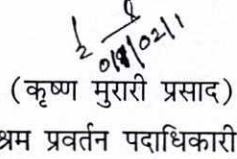 (कृष्ण मुरारी प्रसाद)
श्रम प्रवर्तन पदाधिकारी